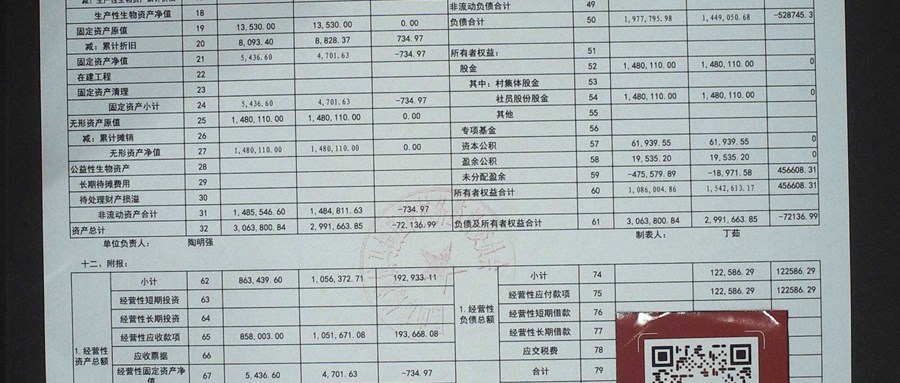 生产性生物资产净值 18 非流动负债合计 49
固定资产原值 19 13,530.00 13,530.00 0.00 负债合计 50 1,977,795.98 1,449,050.68 -528745.3
减：累计折旧 20 8,093.40 8,828.37 734.97
固定资产净值 21 5,436.60 4,701.63 -734.97 所有者权益： 51
在建工程 22 股金 52 1,480,110.00 1,480,110.00 0
固定资产清理 23 其中：村集体股金 53
固定资产小计 24 5,436.60 4,701.63 -734.97 社员股份股金 54 1,480,110.00 1,480,110.00 0
无形资产原值 25 1,480,110.00 1,480,110.00 0.00 其他 55
减：累计摊销 26 专项基金 56
无形资产净值 27 1,480,110.00 1,480,110.00 0.00 资本公积 57 61,939.55 61,939.55 0
公益性生物资产 28 盈余公积 58 19,535.20 19,535.20 0
长期待摊费用 29 未分配盈余 59 -475,579.89 -18,971.58 456608.31
待处理财产损溢 30 所有者权益合计 60 1,086,004.86 1,542,613.17 456608.31
非流动资产合计 31 1,485,546.60 1,484,811.63 -734.97
资产总计 32 3,063,800.84 2,991,663.85 -72,136.99 负债及所有者权益合计 61 3,063,800.84 2,991,663.85 -72136.99
单位负责人： 陶明强 制表人： 丁茹
十二、附报：
小计 62 863,439.60 1,056,372.71 192,933.11 小计 74 122,586.29 122586.29
经营性短期投资 63 经营性应付款项 75 122,586.29 122586.29
经营性长期投资 64 1.经营性负债总额 经营性短期借款 76
经营性应收款项 65 858,003.00 1,051,671.08 193,668.08 经营性长期借款 77
1.经营性资产总额 应收票据 66 应交税费 78
经营性固定资产净值 67 5,436.60 4,701.63 -734.97 合计 79